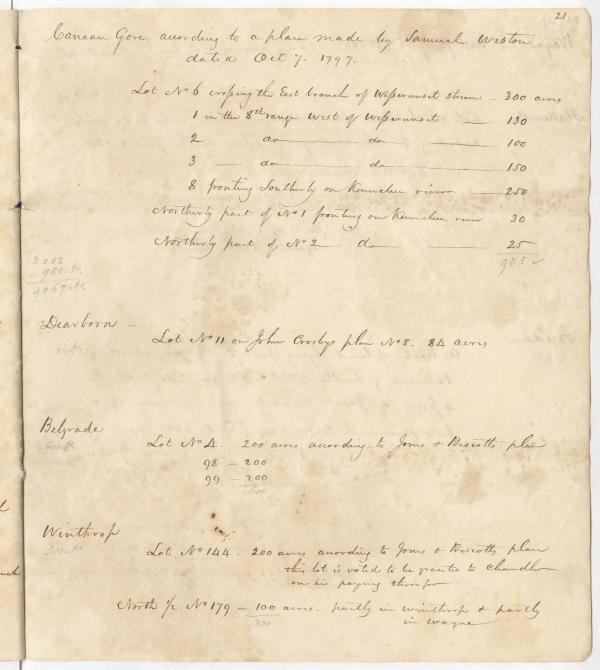 21
Canaan Gore according to a plan made by Samuel Weston
dated Oct 7. 1797.
Lot No 6 crossing the East branch of Wessernuset stream - 300 acres
1 in the 8th range West of Wessernuset — 130
2 do — do — 100
3 — do — do — 150
8 fronting Southerly on Kennebec river — 250
Northerly part of No 1 fronting on Kennebec river 30
Northerly part of No 2 — do — 25
985
985
Dearborn —
Lot No 11 on John Crosbys plan No 8. 84 acres
Belgrade
Lot No 4. 200 acres according to Jones & Prescotts plan
98 — 200
99 — 200
600
Winthrop
Lot No 144. 200 acres according to Jones & Prescotts plan
this lot is voted to be granted to Chandler
on his paying
North 1/2 No 179 — 100 acres. partly in Winthrop & partly
300
in Wayne